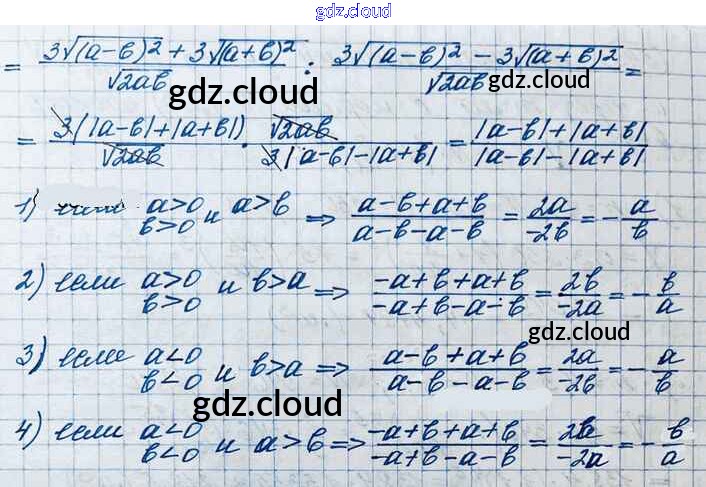 gdz.cloud
= (3√(a-b)² + 3√(a+b)²)/√2ab : (3√(a-b)² - 3√(a+b)²)/√2ab =
gdz.cloud gdz.cloud
= 3(|a-b|+|a+b|)/√2ab · √2ab/3|a-b|-|a+b| = |a-b|+|a+b|/|a-b|-|a+b|
1) a>0 b>0 и a>b ⇒ a-b+a+b/a-b-a-b = 2a/-2b = - a/b
2) если a>0 b>0 и b>a ⇒ -a+b+a+b/-a+b-a-b = 2b/-2a = - b/a
gdz.cloud
3) если a<0 b<0 и b>a ⇒ a-b+a+b/a-b-a-b = 2a/-2b = - a/b
gdz.cloud
4) если a<0 b<0 и a>b ⇒ -a+b+a+b/-a+b-a-b = 2b/-2a = - b/a